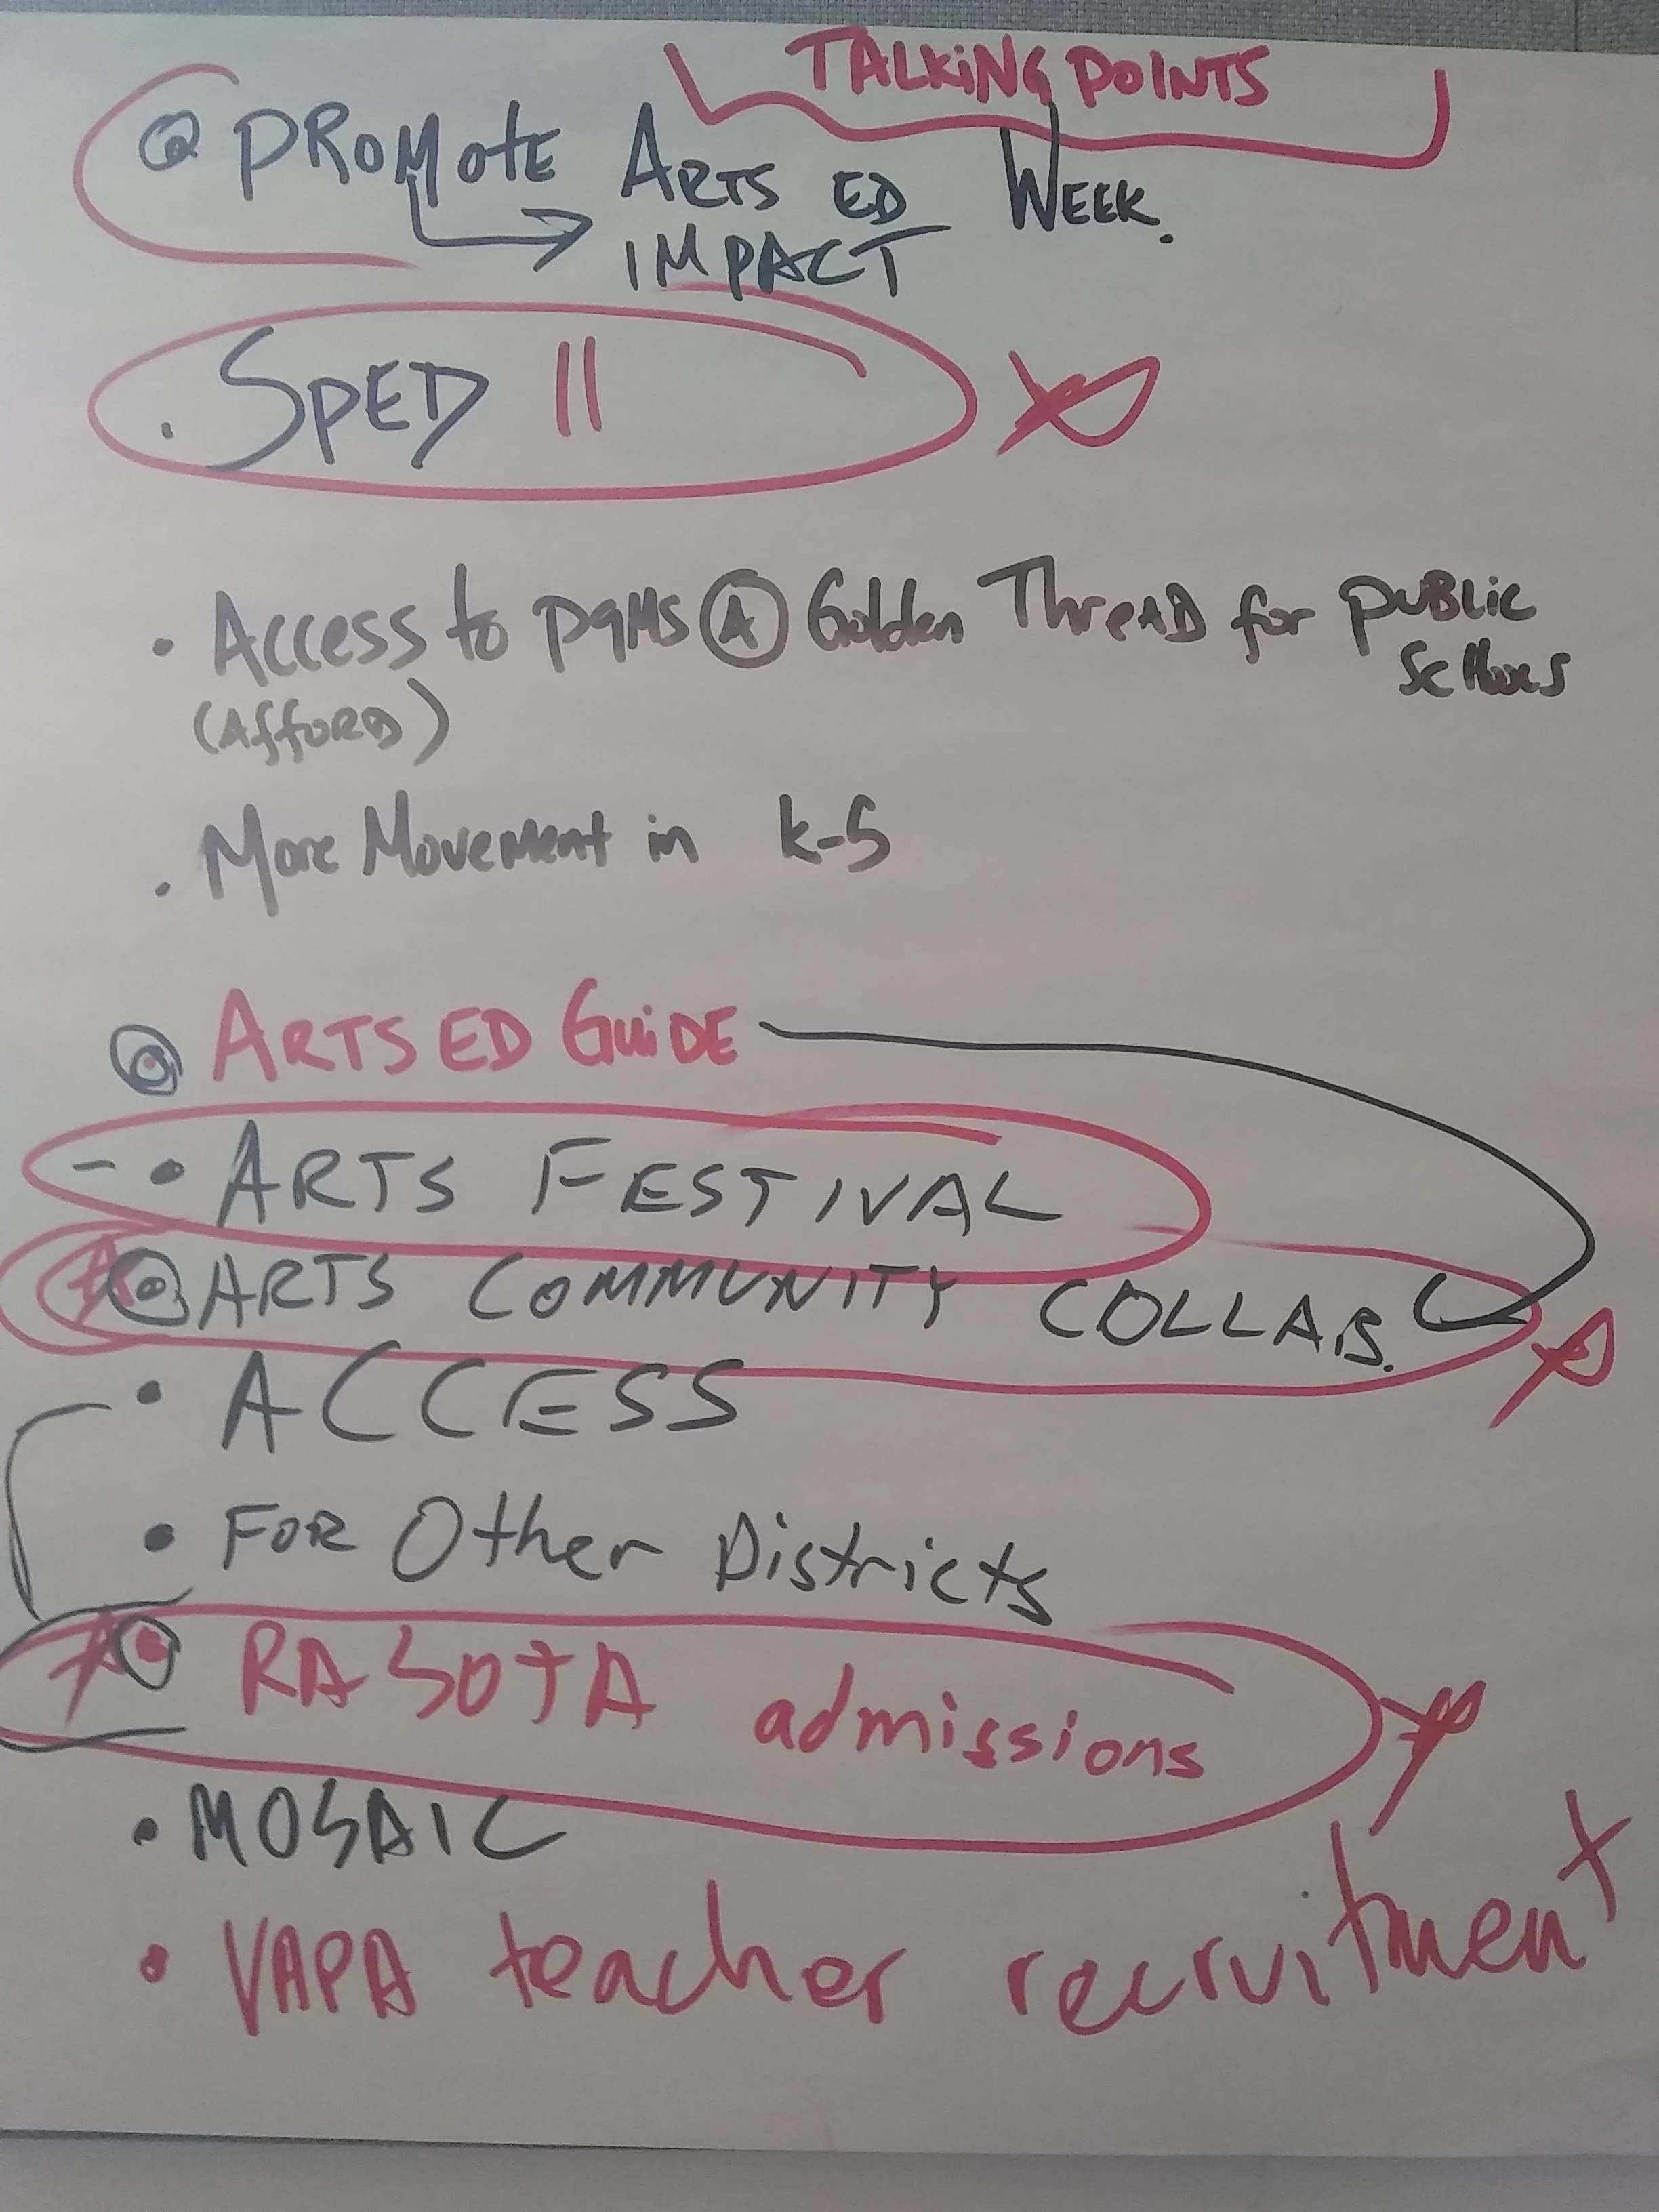 TALKING POINTS
PROMOTE ARTS ED WEEK.
IMPACT
. SPED ||
• Access to pgms A Golden Thread for public
Schools
(Afford)
. More Movement in K-5
ARTS ED GUIDE
- • ARTS FESTIVAL
ARTS COMMUNITY COLLAB.
• ACCESS
• FOR Other Districts
RASOTA admissions
• MOSAIC
• VAPA teacher recruitment